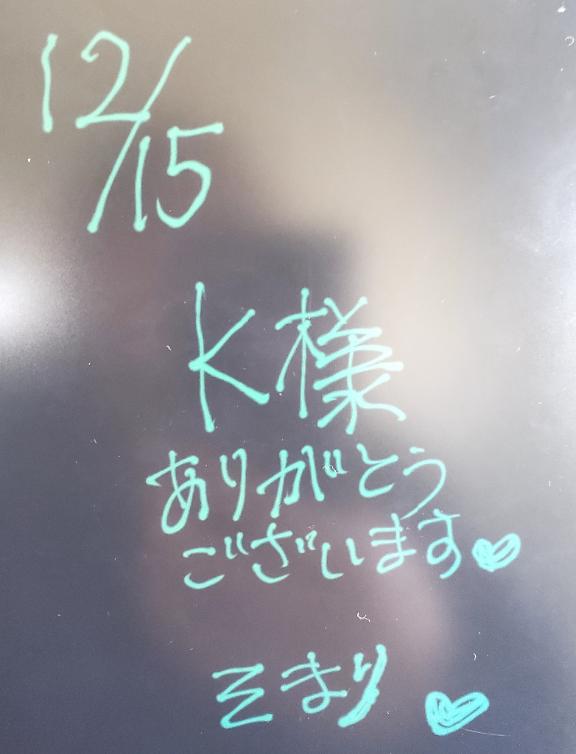 12/15
K様
ありがとう
ございます♥
そまり♥